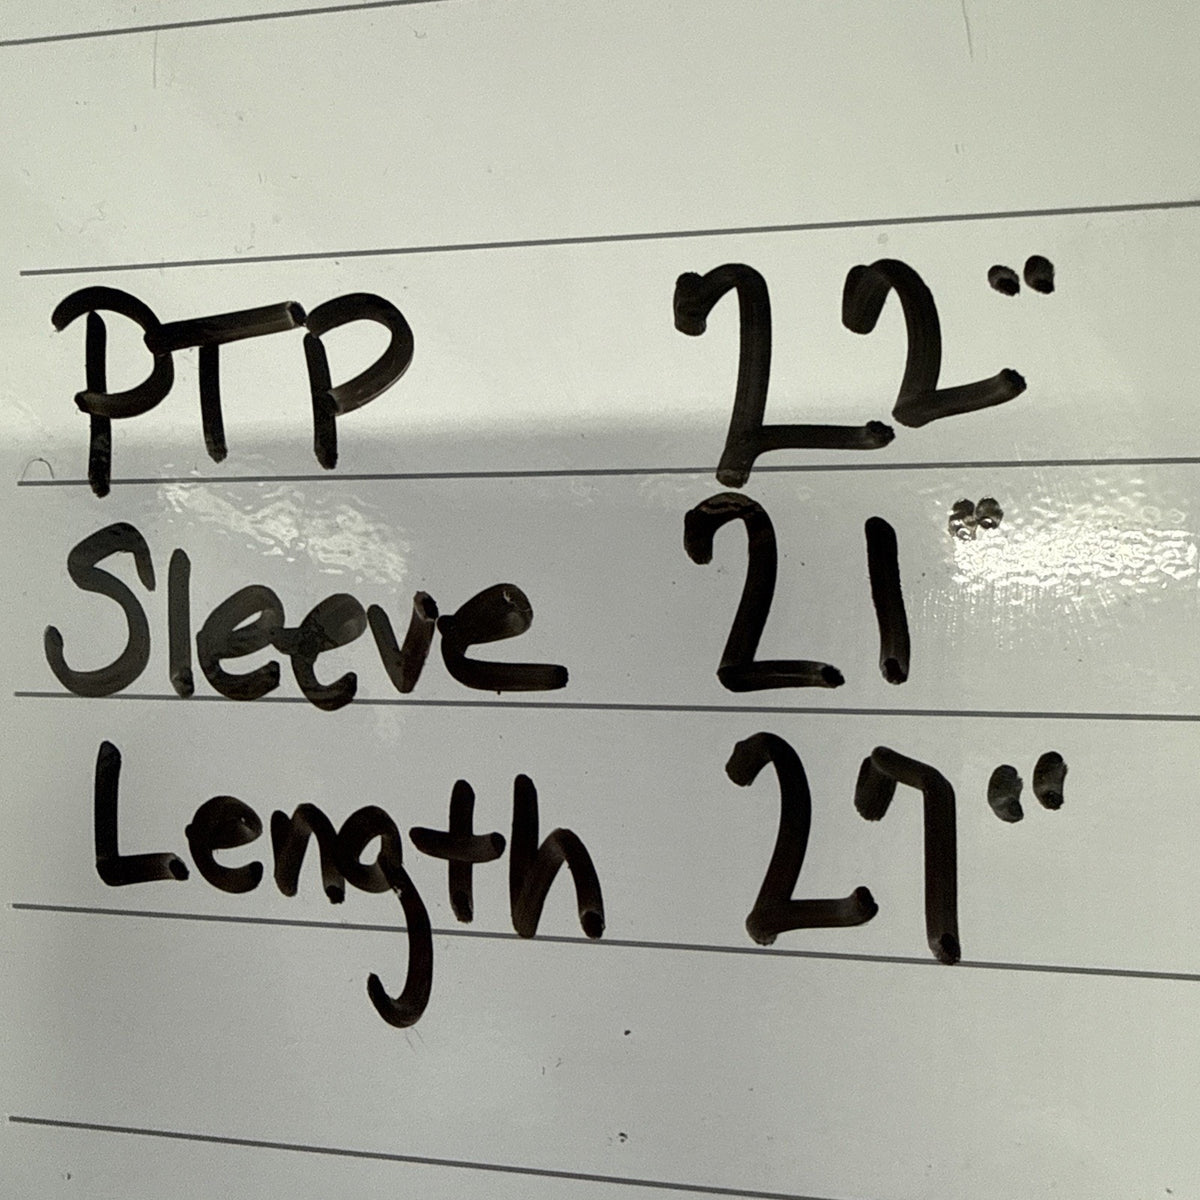 PTP 22"
Sleeve 21"
Length 27"